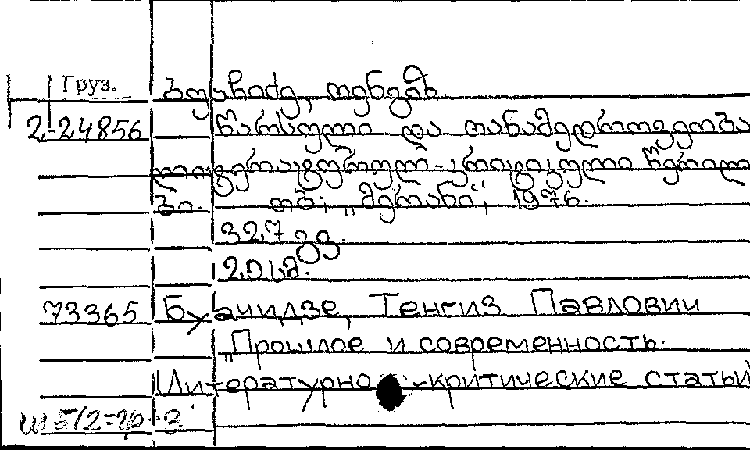 Груз.
ბუაჩიძე, თენგიზ
2-24856 წარსული და თანამედროვეობა
ლიტერატურულ-კრიტიკული წერილე
ბი. თბ., „მერანი", 1976.
327 გვ.
20 სმ.
73365 Буачидзе, Тенгиз Павлович
„Прошлое и современность.
Литературно-критические статьи